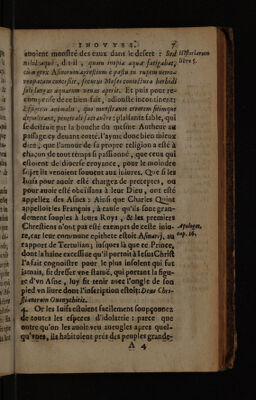 INOVYES. 7
auoient monstré des eaux dans le desert : Sed
nihil æquè, dit-il, quàm inopia aquæ fatigabat;
cùm grex Asinorum agrestium è pastu in rupem nemo-
re opacam concessit, secutus Moses coniectura herbidi
soli largas aquarum venas aperit. Et puis pour re-
compense de ce bien-fait, adiouste incontinent:
Effigiem animalis, quo monstrante errorem sitimque
depulerant, penetrali sacrauêre: plaisante fable, qui
se destruit par la bouche du mesme Autheur au
passage cy deuant conté. I'ayme donc bien mieux
dire, que l'amour de sa propre religion a esté à
chacun de tout temps si passionné, que ceux qui
estoient de diuerse croyance, pour le moindre
sujet ils venoient souuent aux iniures. Que si les
Iuifs pour auoir esté chargez de preceptes, ou
pour auoir esté obeissans à leur Dieu, ont esté
appellez des Asnes: Ainsi que Charles Quint
appelloit les François, à cause qu'ils sont gran-
dement souples à leurs Roys, & les premiers
Chrestiens n'ont pas esté exempts de ceste iniu-
re, car leur commune epithete estoit Asinarij, au
rapport de Tertulian; iusques là que ce Prince,
dont la haine excessiue qu'il portoit à Iesus Christ
l'a fait cognoistre pour le plus insolent qui fut
iamais, fit dresser vne statuë, qui portant la figu-
re d'vn Asne, luy fit tenir auec l'ongle de son
pied vn liure dont l'inscription estoit: Deus Chri-
stianorum Ononychitis.
4. Or les Iuifs estoient facilement soupçonnez
de toutes les especes d'idolatrie: parce que
outre qu'on les auoit veu aueugles apres quel-
qu'vnes, ils habitoient prés des peuples grande-
A 4
Historiarum
libro 5.
Apologet.
cap. 16.